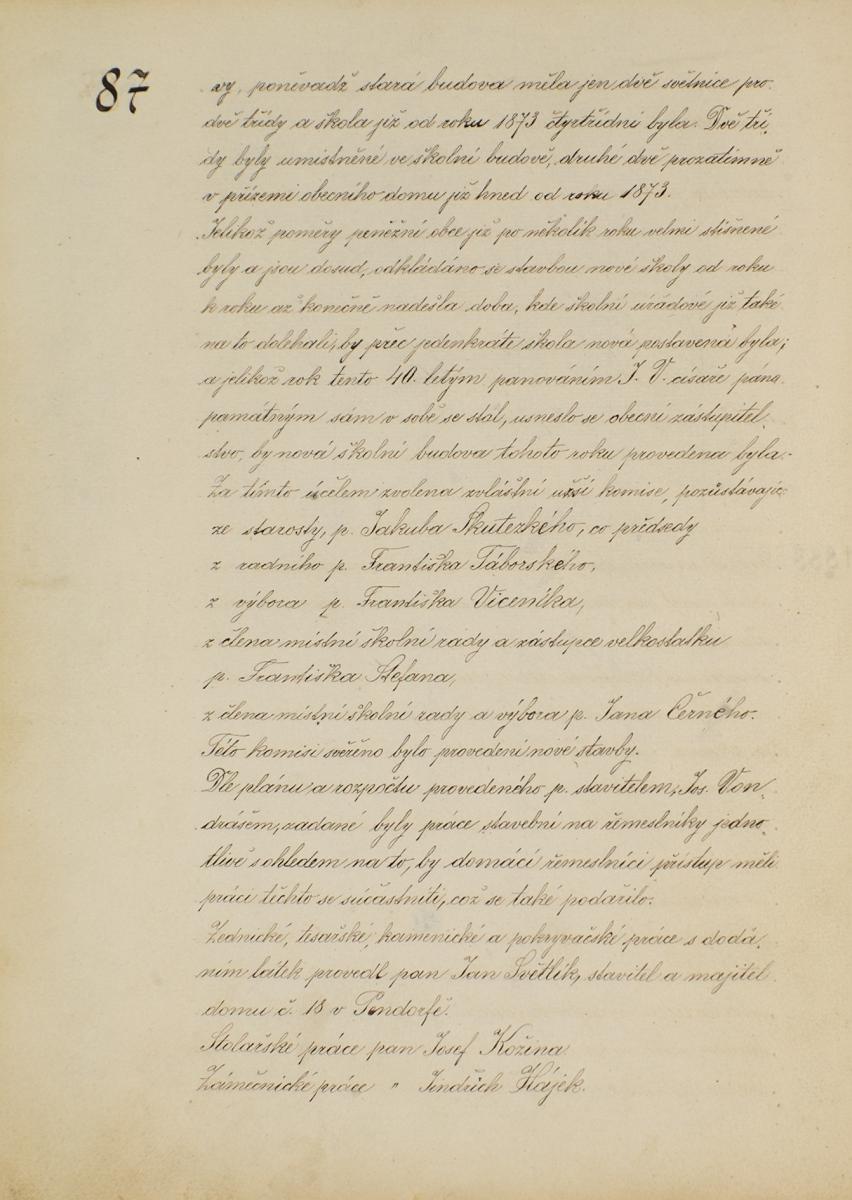 87
vy, poněvadž stará budova měla jen dvě světnice pro
dvě třídy a škola již od roku 1873 čtyrtřídní byla. Dvě tří-
dy byly umístněné ve školní budově, druhé dvě prozatimně
v přízemí obecního domu již hned od roku 1873.
Jelikož poměry peněžní obce již po několik roku velmi stísnené
byly a jsou dosud, odkládáno se stavbou nové školy od roku
k roku až konečně nadešla doba, kde školní úřadové již také
na to doléhali, by přec jedenkráte škola nová postavena byla;
a jelikož rok tento 40. letým panováním J. V. císaře pána
památným sám v sobě se stal, usneslo se obecní zástupitel-
stvo, by nová školní budova tohoto roku provedena byla.-
Za tímto účelem zvolena zvláštní užší komise, pozůstávajíc
ze starosty, p. Jakuba Skutezkého, co předsedy
z radního p. Františka Táborského,
z výbora p. Františka Viceníka,
z člena místní školní rady a zástupce velkostatku
p. Františka Štefana,
z člena místní školní rady a výbora p. Jana Černého.
Této komisi svěřeno bylo provedení nové stavby.
Dle plánu a rozpočtu provedeného p. stavitelem, Jos. Von-
drášem, zadané byly práce stavební na řemeslníky jedno-
tlivě s ohledem na to, by domácí řemeslníci přístup měli
práci těchto se súčastniti, což se také podařilo.
Zednické, tesařské, kamenické a pokryvačské práce s dodá-
ním látek provedl pan Jan Světlík, stavitel a majitel
domu č. 18 v Pendorfě.
Stolařské práce pan Josef Kožina
Zámečnické práce " Jindřich Hájek.